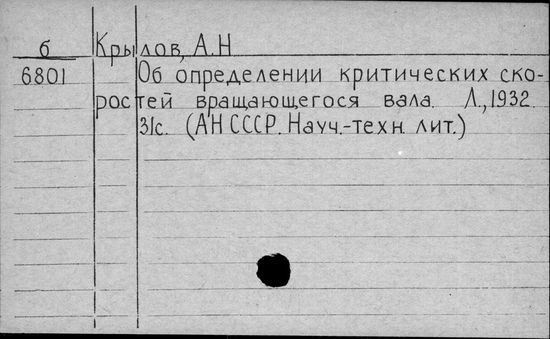 б Крылов, А.Н
6801 Об определении критических ско-
ростей вращающегося вала. Л.,1932.
31с. (АН СССР. Науч.-техн. лит.)